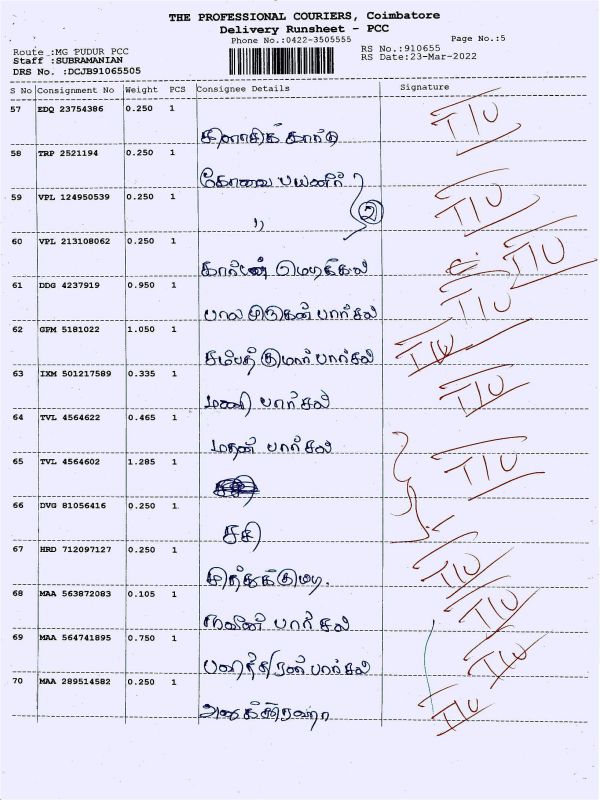 THE PROFESSIONAL COURIERS, Coimbatore
Delivery Runsheet - PCC
Phone No.:0422-3505555
Page No.:5
Route :MG PUDUR PCC
RS No.:910655
Staff :SUBRAMANIAN
RS Date:23-Mar-2022
DRS No. :DCJB91065505
S No Consignment No Weight PCS Consignee Details Signature
57 EDQ 23754386 0.250 1
T/U
கார்டு
58 TRP 2521194 0.250 1
கோவை பயணீர்
59 VPL 124950539 0.250 1
T/U
,, 2
60 VPL 213108062 0.250 1
T/U
மெடிக்கல்
61 DDG 4237919 0.950 1
T/U
பால முருகன் பார்சல்
62 GPM 5181022 1.050 1
T/U
சம்பத் குமார் பார்சல்
63 IXM 501217589 0.335 1
T/U
மணி பார்சல்
64 TVL 4564622 0.465 1
மதன் பார்சல்
65 TVL 4564602 1.285 1
T/U
66 DVG 81056416 0.250 1
சசி
67 HRD 712097127 0.250 1
T/U
முத்துக்குமார்.
68 MAA 563872083 0.105 1
T/U
நவீன் பார்சல்
69 MAA 564741895 0.750 1
T/U
பார்சல்
70 MAA 289514582 0.250 1
T/U